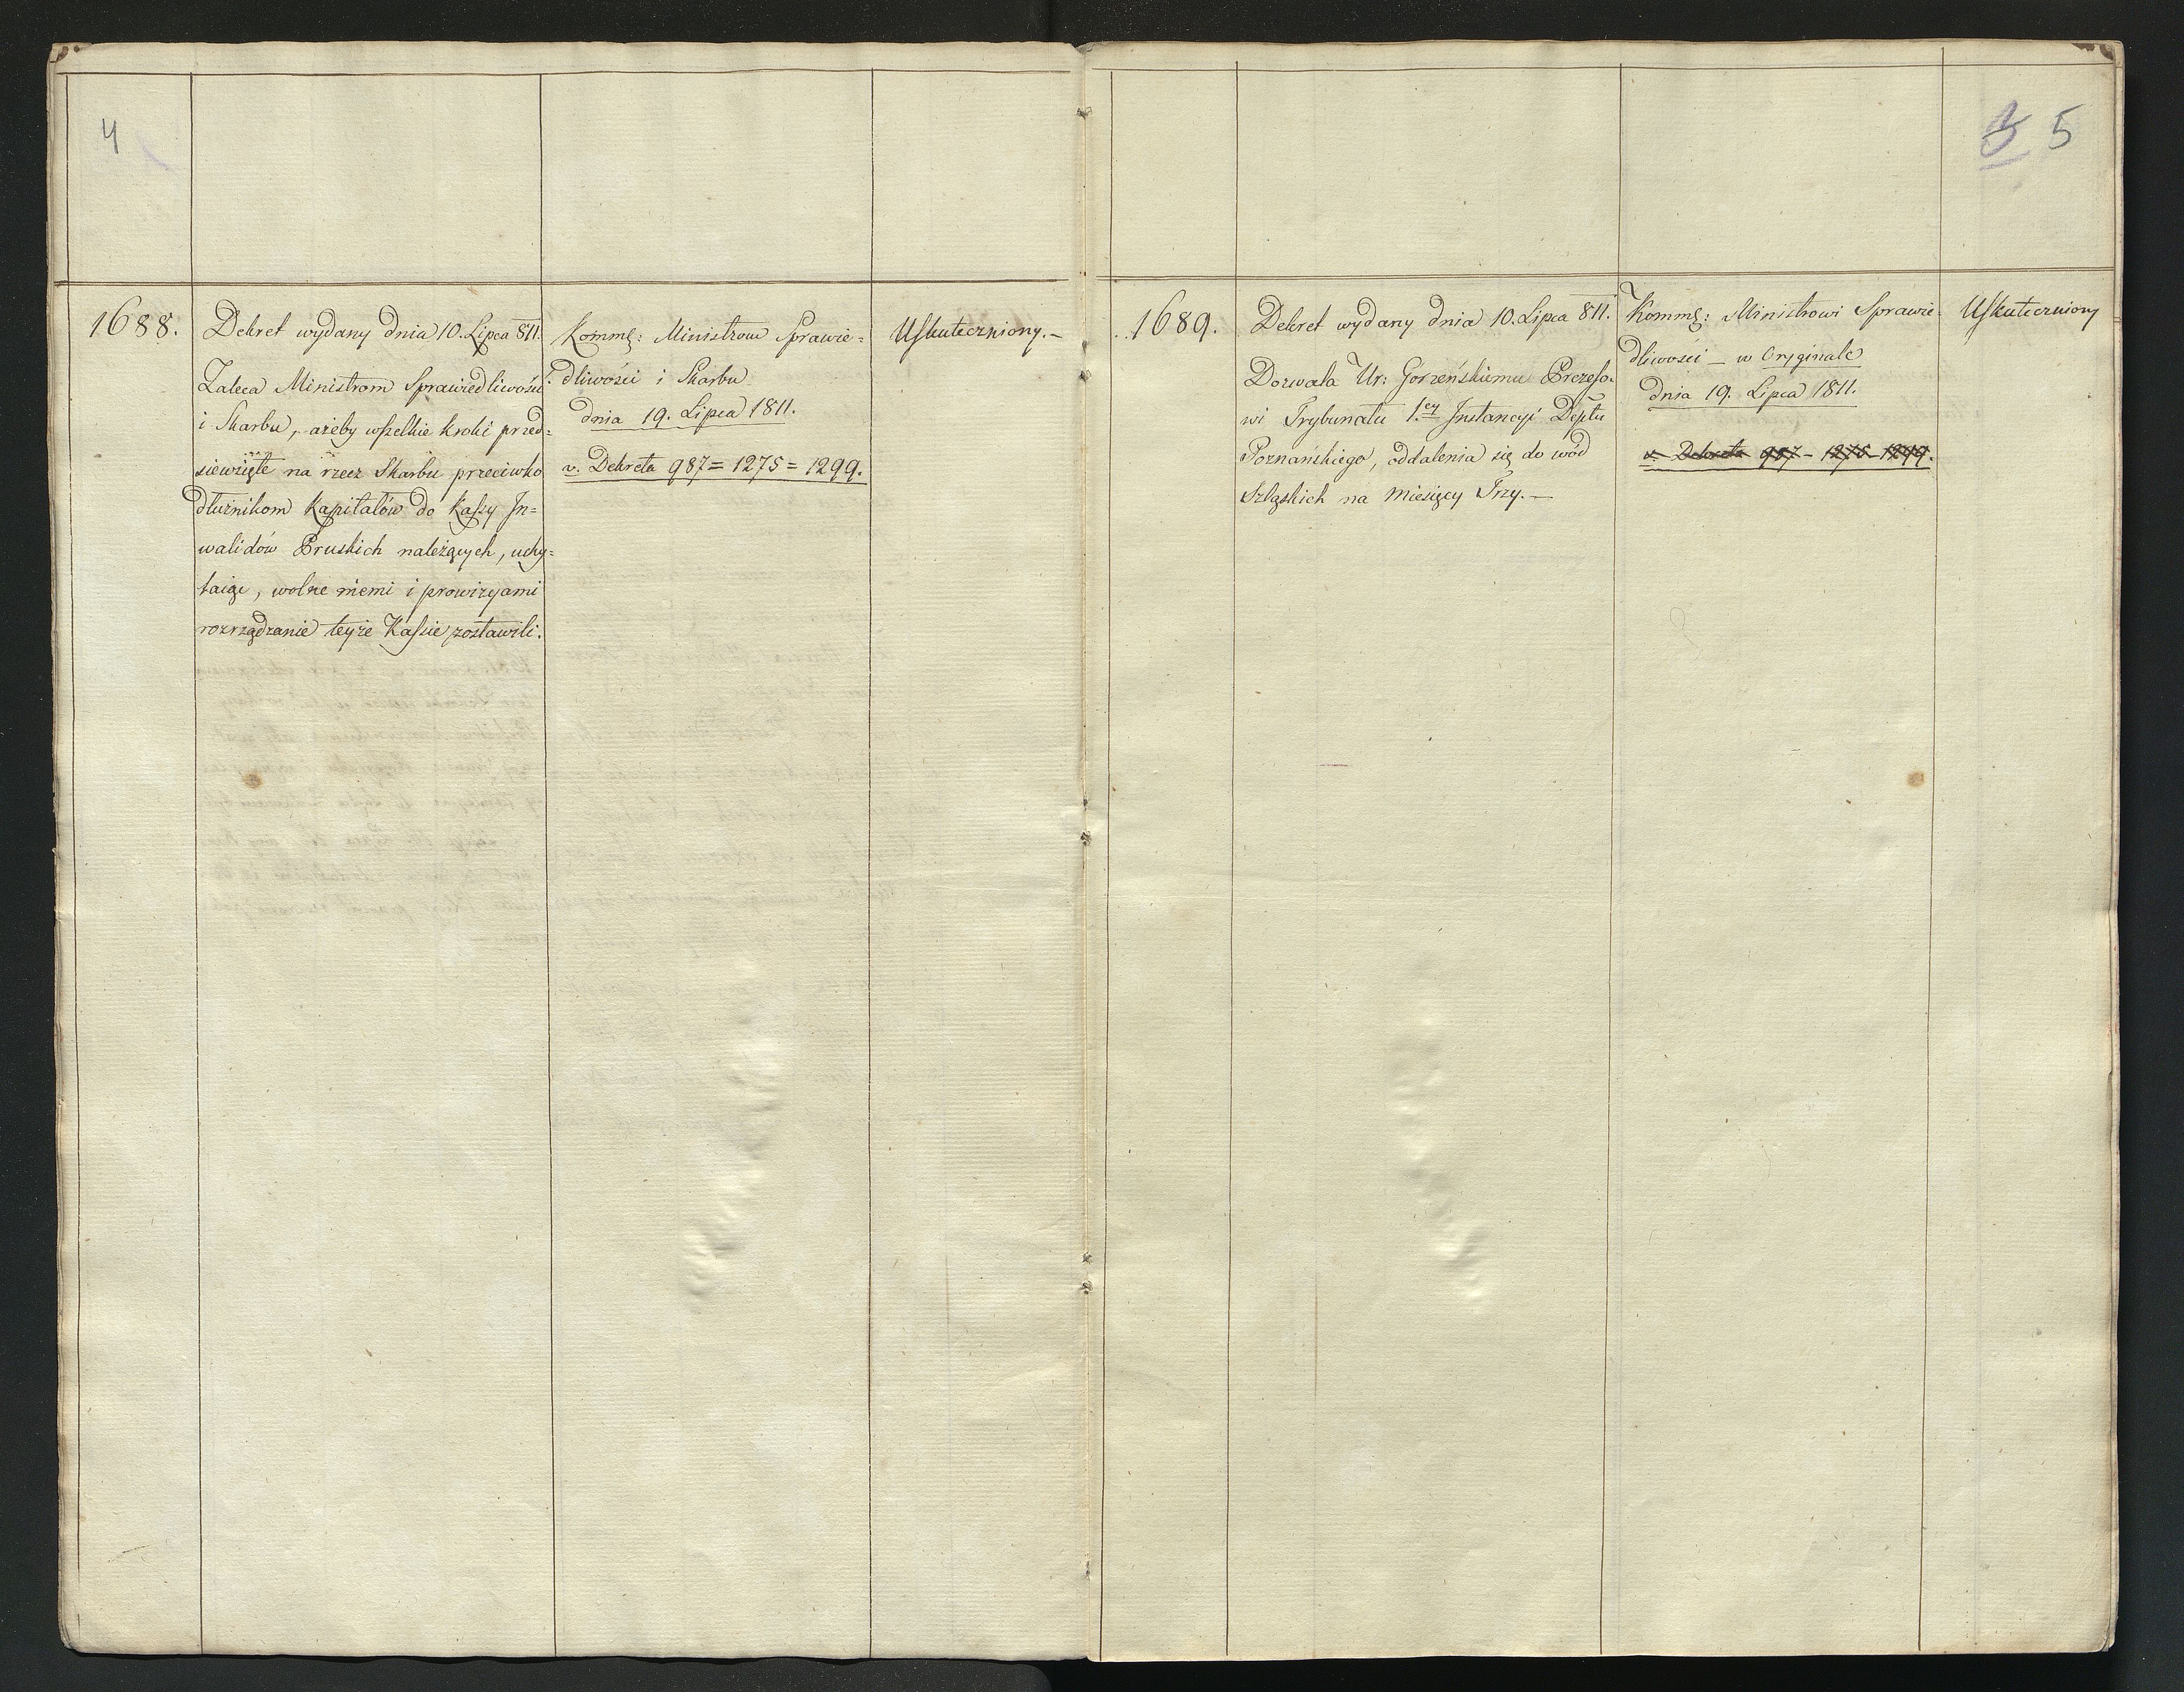 4
1688.
Dekret wydany dnia 10. Lipca 811.
Zaleca Ministrom Sprawiedliwości
i Skarbu, ażeby wszelkie kroki przed=
siewzięte na rzecz Skarbu przeciwko
dłużnikom Kapitałów do Kassy In=
walidów Pruskich należących, uchy=
laiąc, wolne niemi i prowizyami
rozrządzanie teyże Kassie zostawili.
Kommę: Ministrom Sprawie=
dliwości i Skarbu
dnia 19. Lipca 1811.
v. Dekreta 987 = 1275 = 1299.
Uskuteczniony.—
5
1689.
Dekret wydany dnia 10. Lipca 811.
Dozwala Ur: Gorzeńskiemu Prezeso=
wi Trybunału 1.ey Instancyi Deptu
Poznańskiego, oddalenia się do wód
Szląskich na Miesięcy Trzy.—
Kommę: Ministrowi Sprawie=
dliwości — w Oryginale
dnia 19. Lipca 1811.
v. Dekreta 987 - 1275 - 1299.
Uskuteczniony